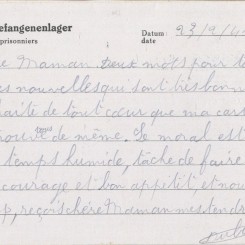 efangenenlager
prisonniers
Datum :
date
23/9/4
e Maman Deux mots pour te
es nouvelles qui sont tres bonn
haite de tout cœur que ma car
trouve tous de même. Le moral est
temps humide, tâche de faire
courage et bon appétit, et nou
p, reçois chère Maman mes tend